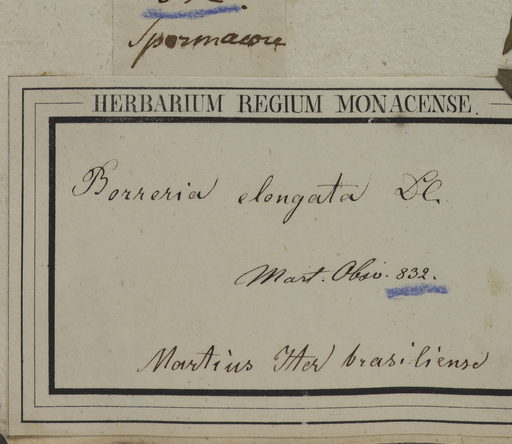 Spermacoce
HERBARIUM REGIUM MONACENSE.
Borreria elongata DC.
Mart. Obsv. 832.
Martius Iter brasiliense